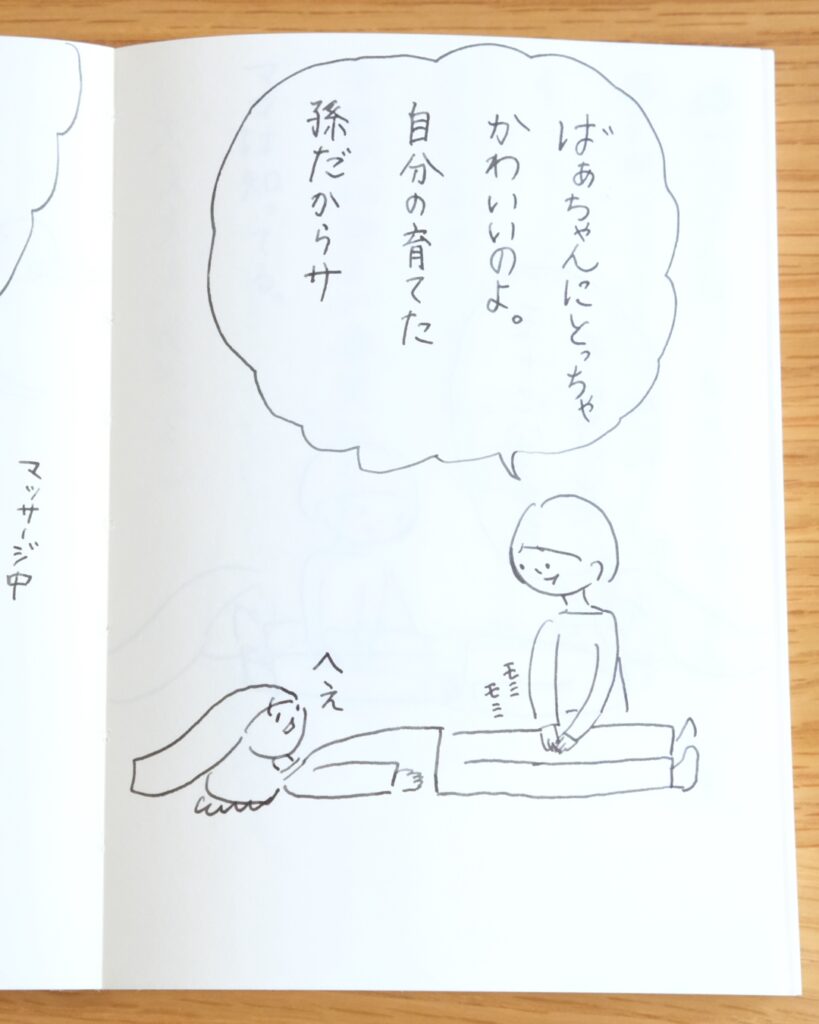 ばぁちゃんにとっちゃ
かわいいのよ。
自分の育てた
孫だからサ
モミ
モミ
へえ
マッサージ中